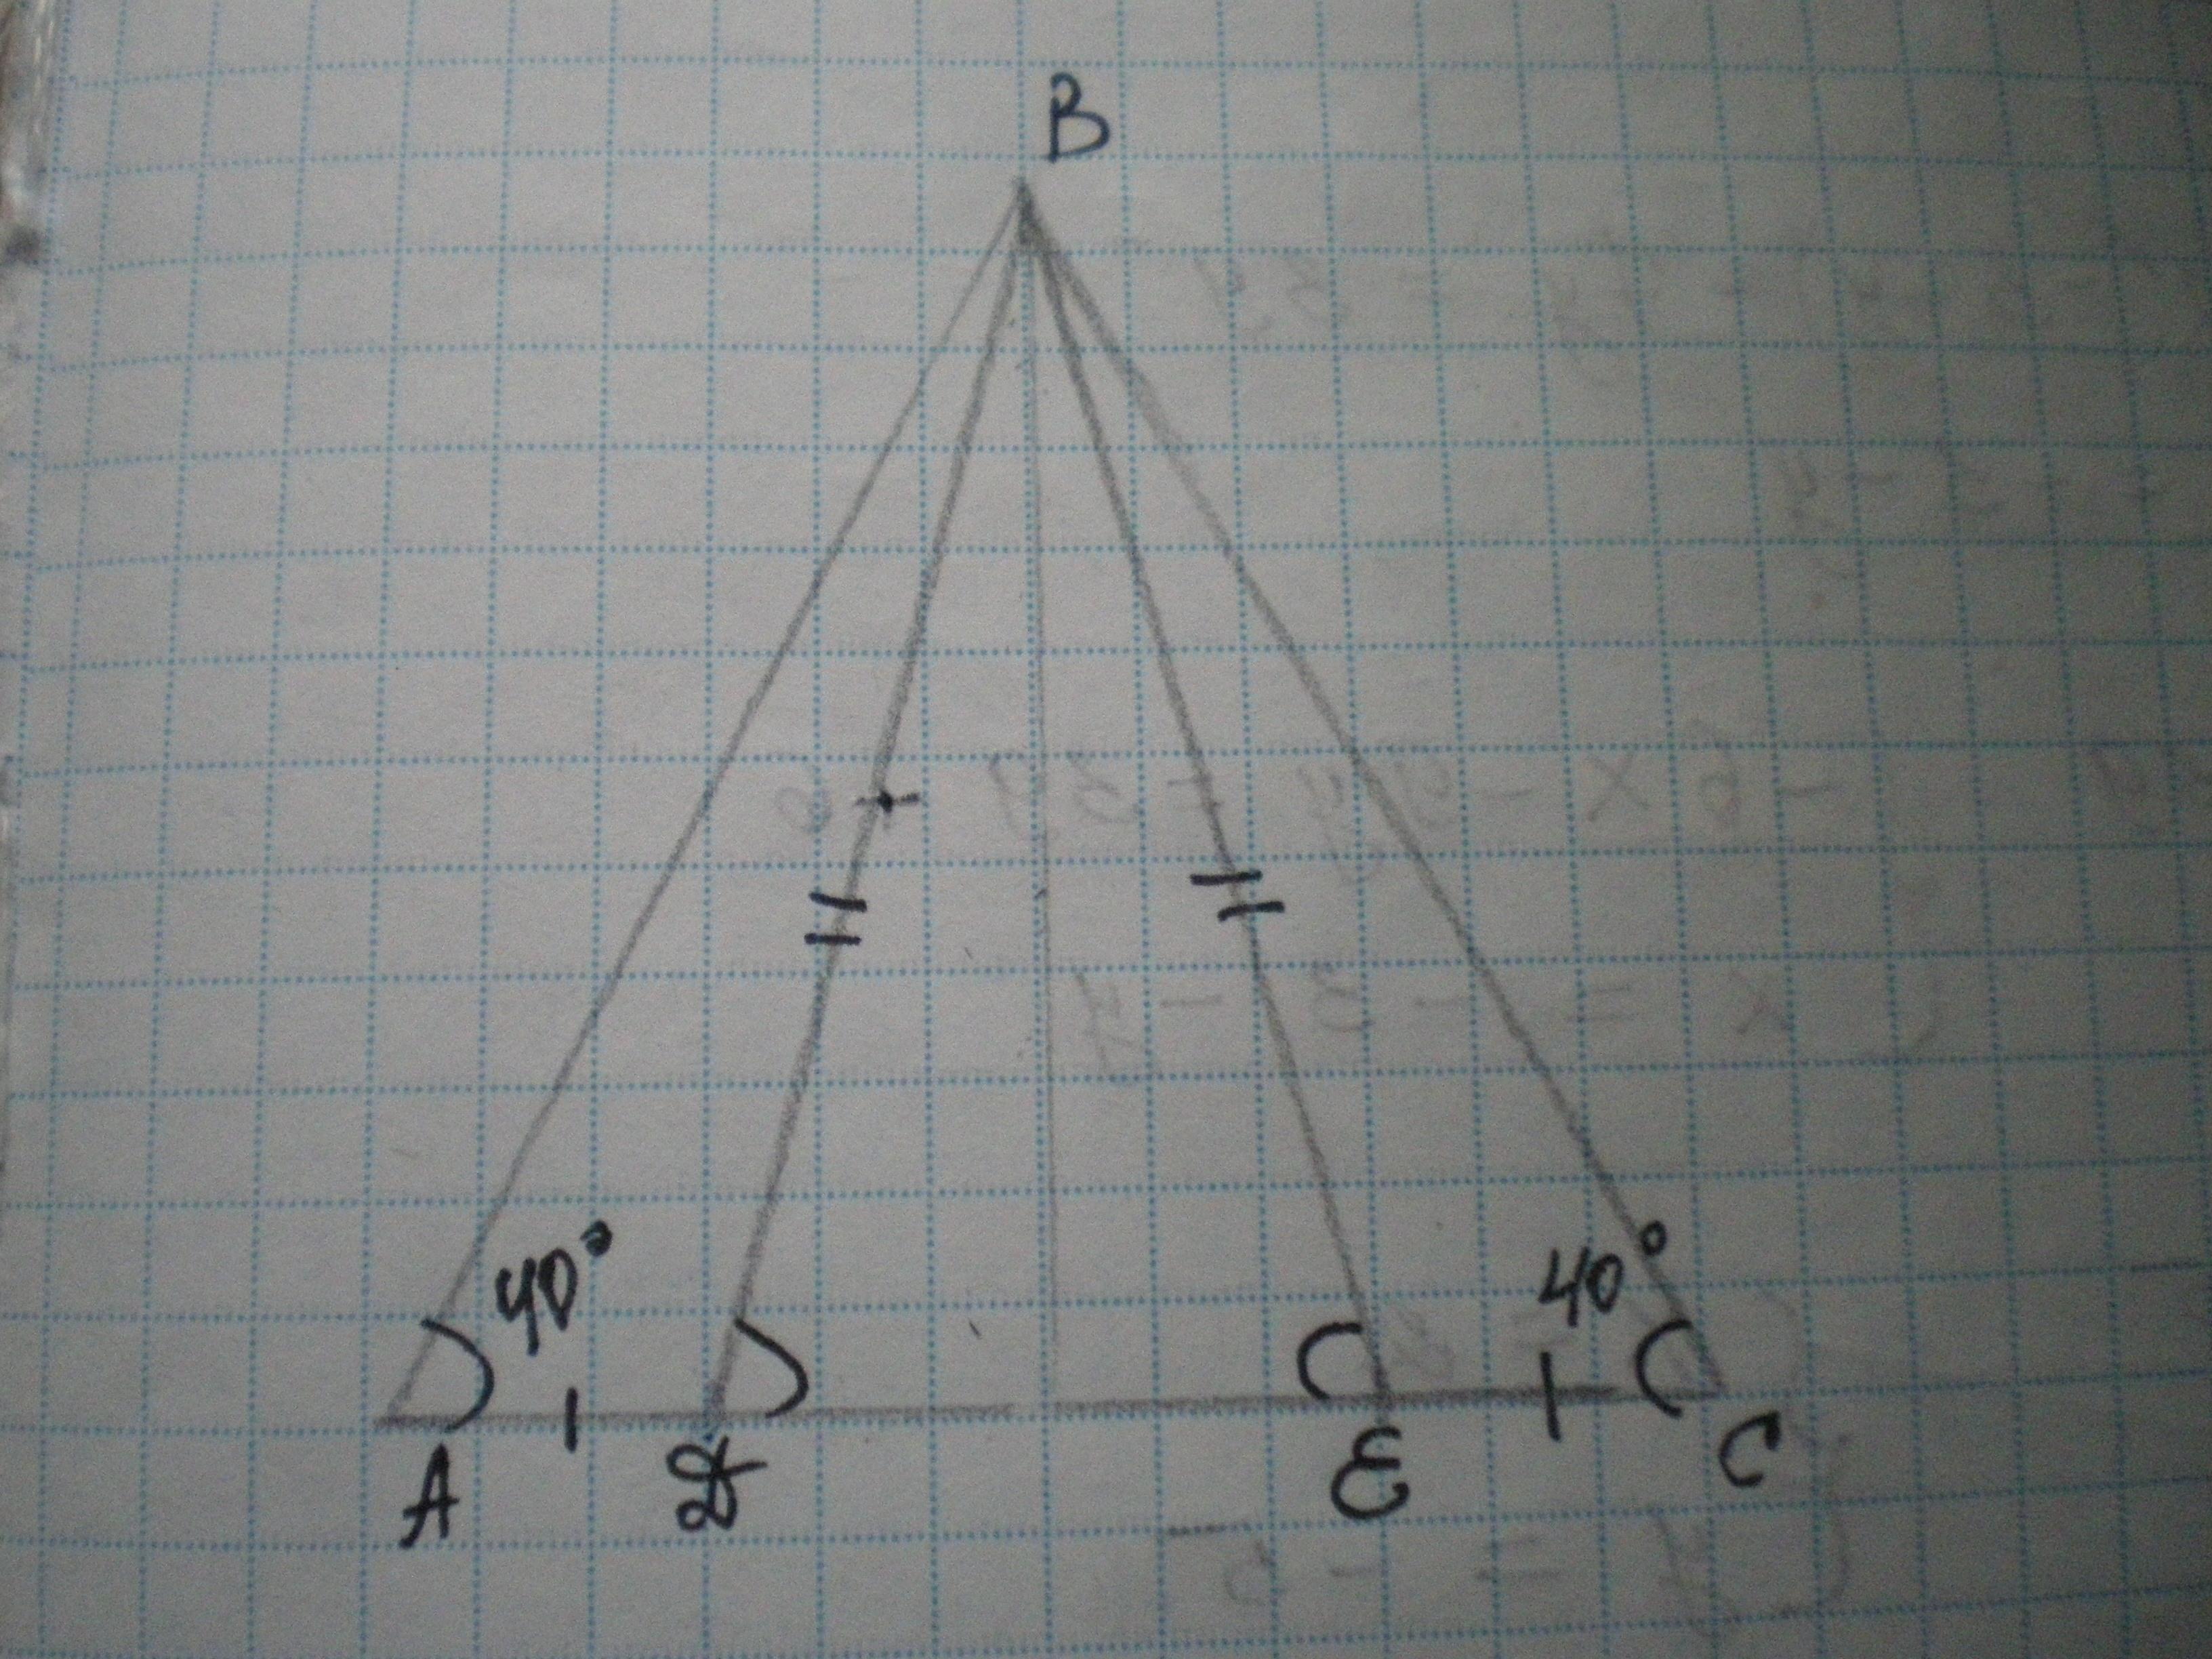 B
40°
40°
A Д E C